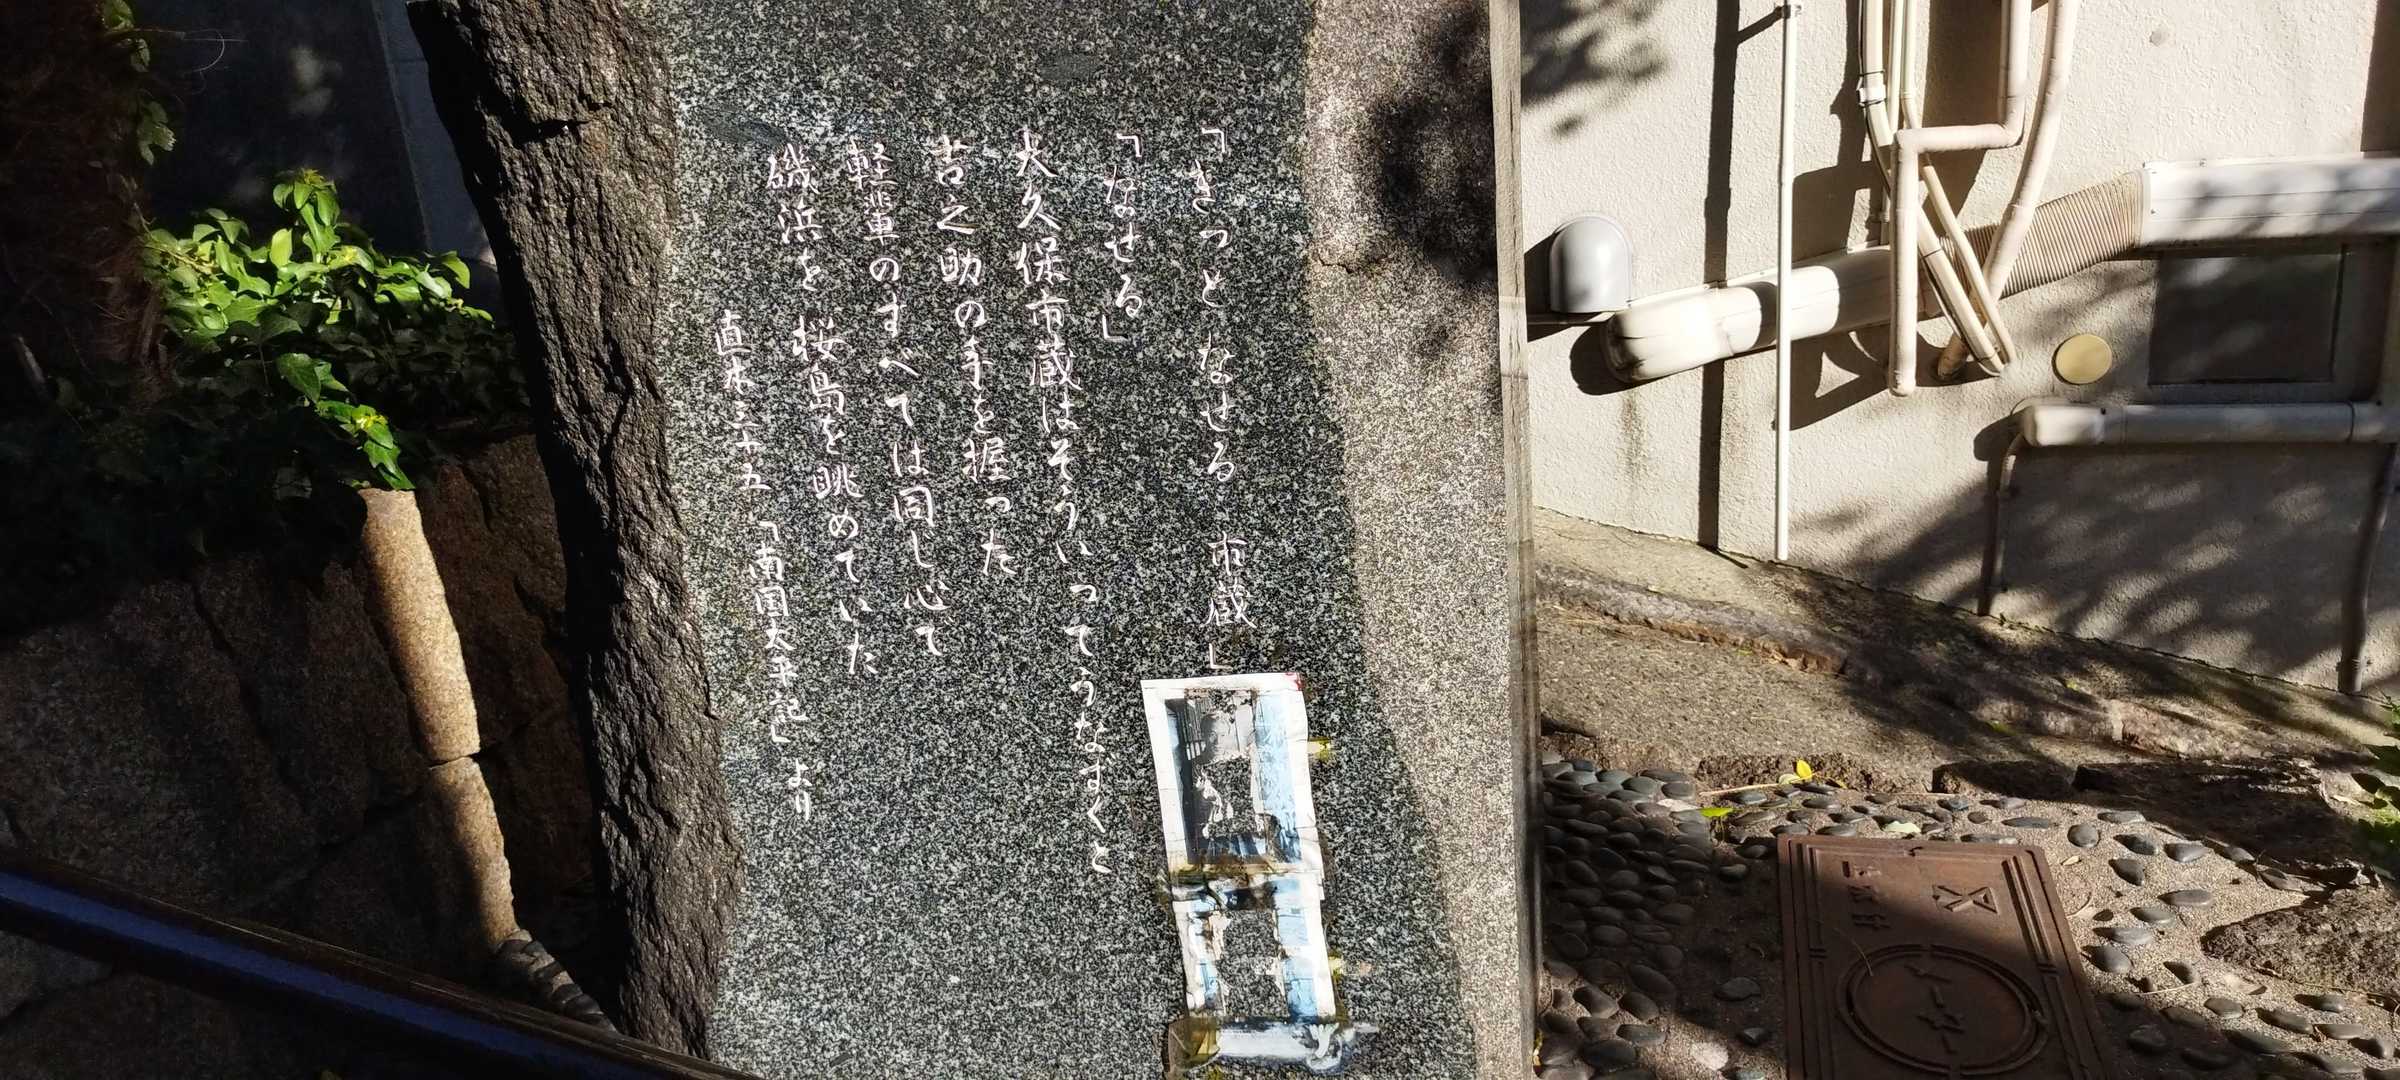 「きっとなせる 市蔵」
「なせる」
大久保市蔵はそういってうなずくと
吉之助の手を握った
軽輩のすべては同し心で
磯浜を 桜島を眺めていた
直木三十五 「南国太平記」より